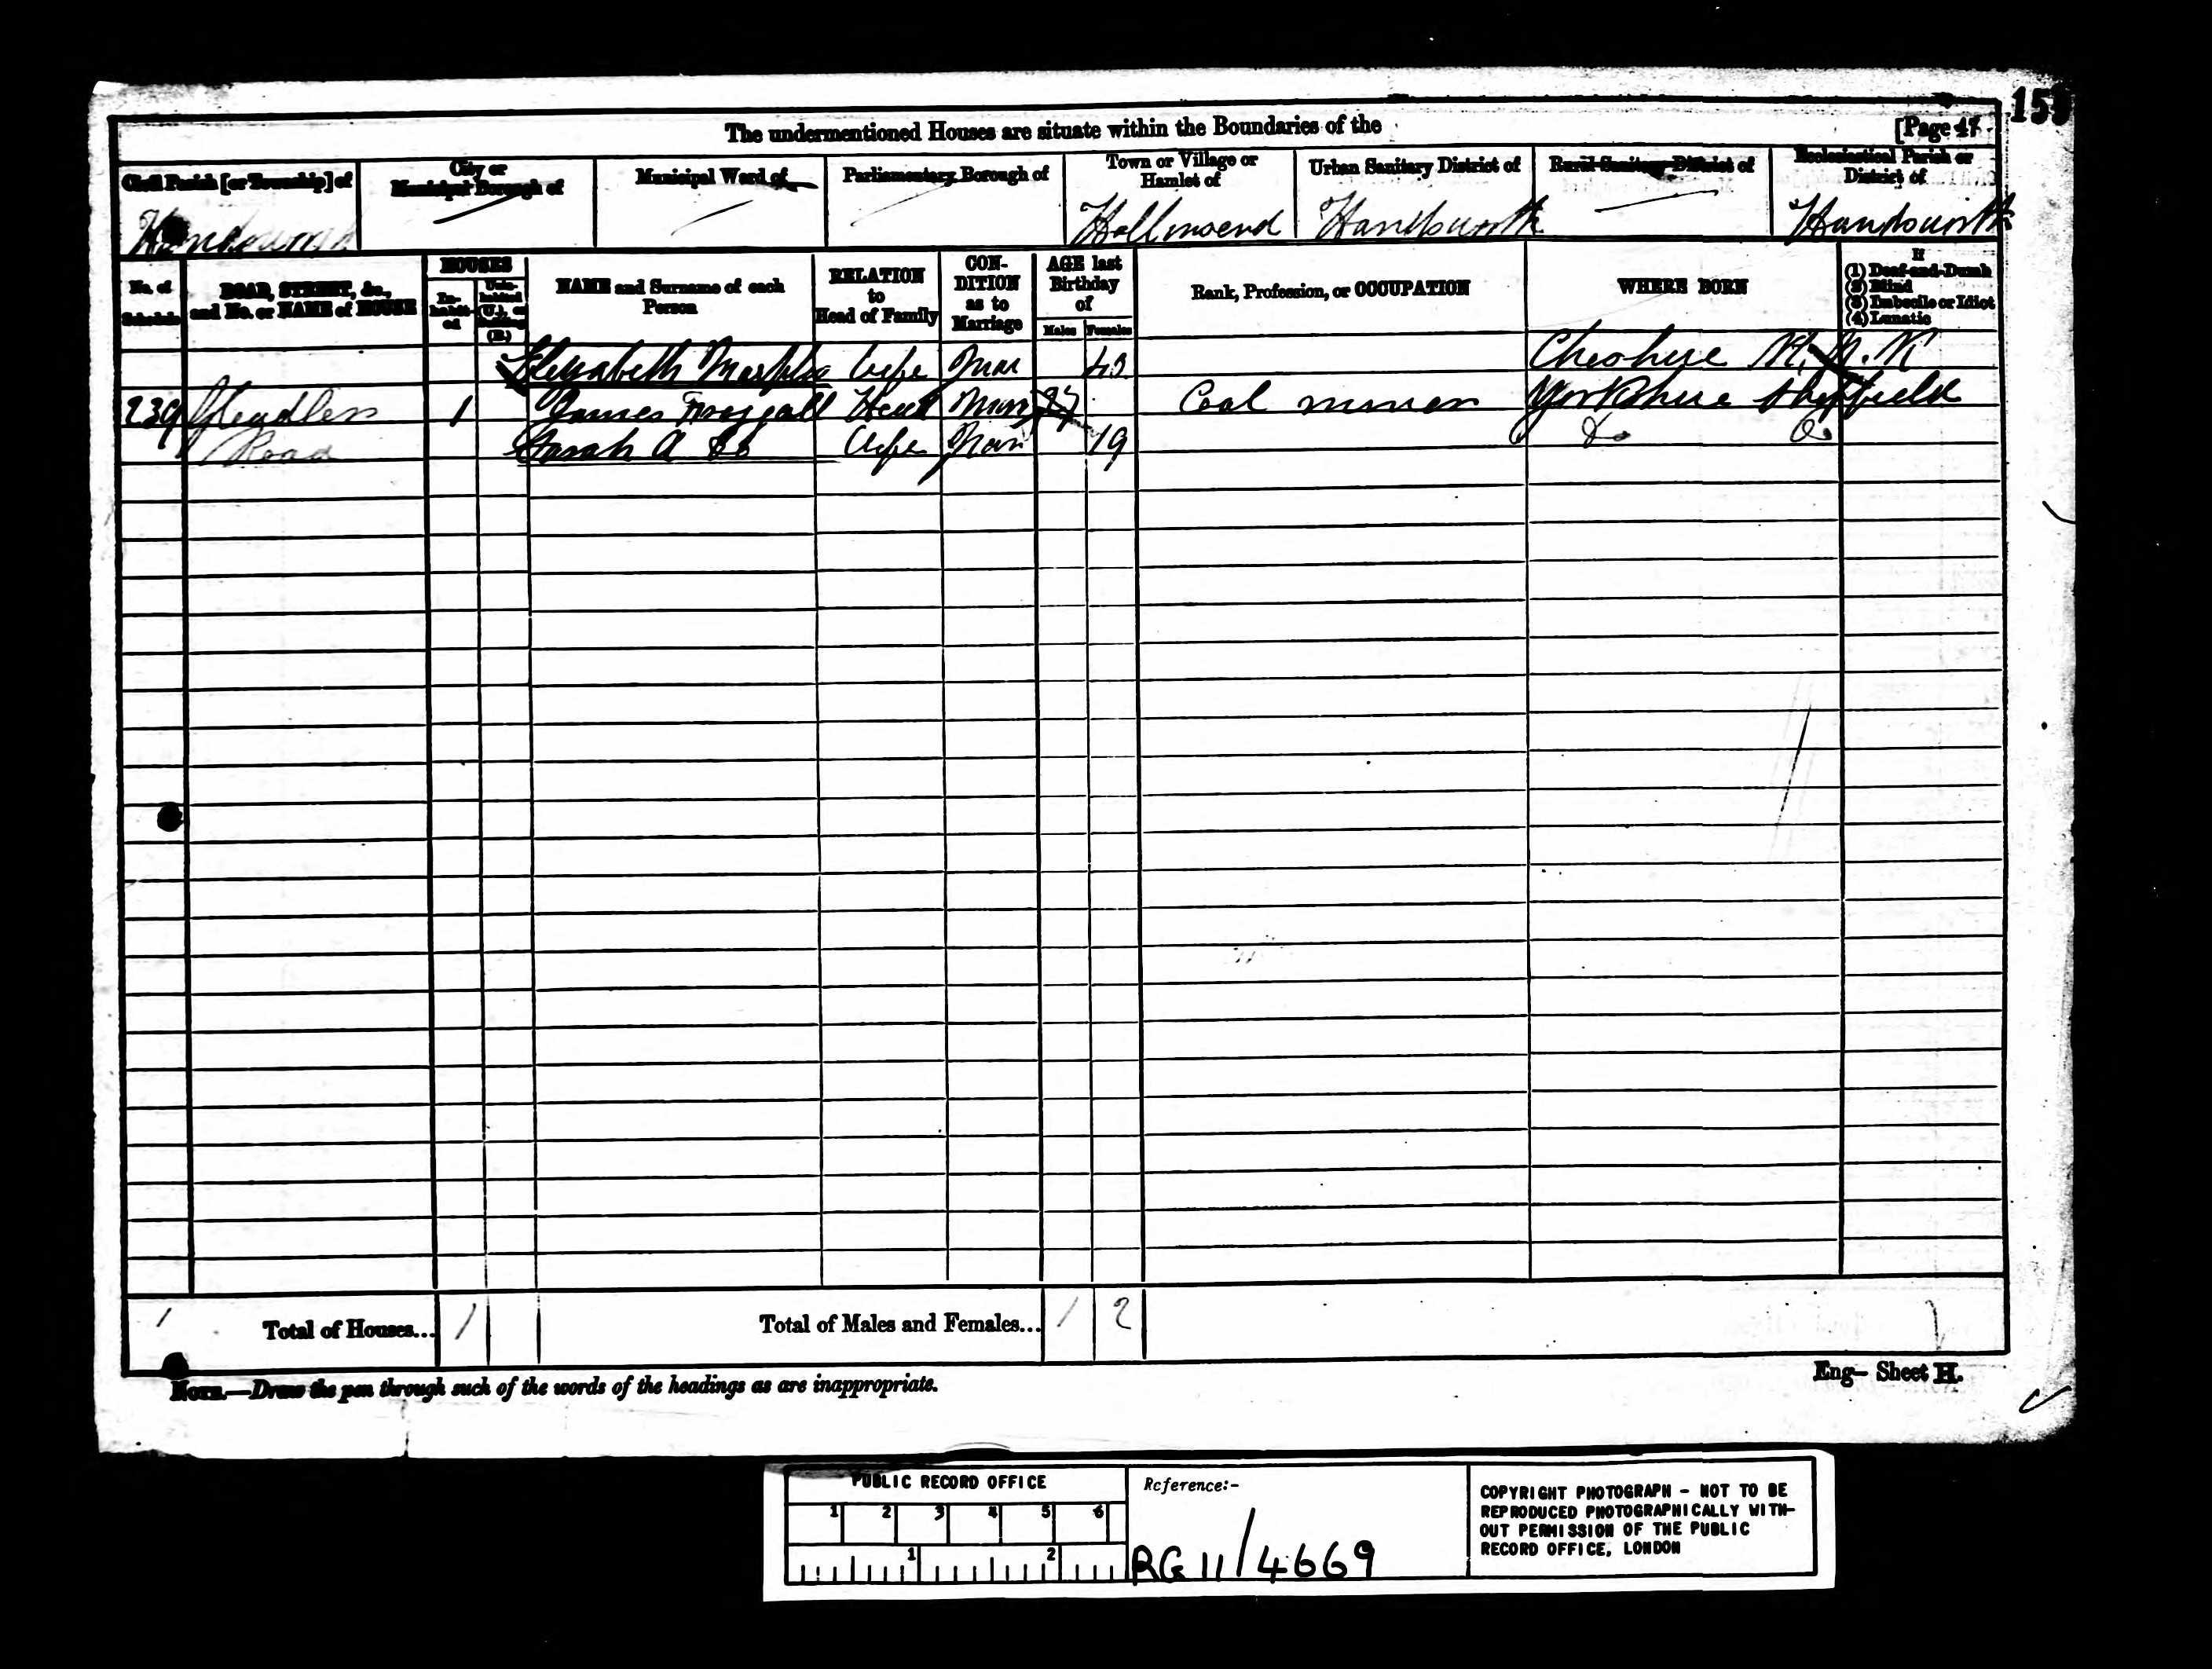 159
The undermentioned Houses are situate within the Boundaries of the
[Page 47
Civil Parish [or Township] of
City or Municipal Borough of
Municipal Ward of
Parliamentary Borough of
Town or Village or Hamlet of
Urban Sanitary District of
Rural Sanitary District of
Ecclesiastical Parish or District of
Handsworth
Hollinsend
Handsworth
Handsworth
No. of Schedule
ROAD, STREET, &c., and No. or NAME of HOUSE
HOUSES
Inhabited
Uninhabited (U.), or Building (B.)
NAME and Surname of each Person
RELATION to Head of Family
CONDITION as to Marriage
AGE last Birthday of
Males
Females
Rank, Profession, or OCCUPATION
WHERE BORN
If
(1) Deaf-and-Dumb
(2) Blind
(3) Imbecile or Idiot
(4) Lunatic
Elizabeth Wife Mar 43 Cheshire N.K
239 Gleadless 1 James Froggatt Head Mar 27 Coal miner Yorkshire Sheffield
Road Sarah A Do Wife Mar 19 Do Do
Total of Houses... 1
Total of Males and Females... 1 2
NOTE.—Draw the pen through such of the words of the headings as are inappropriate.
Eng— Sheet H.
PUBLIC RECORD OFFICE
1 2 3 4 5 6
1 2
Reference:-
RG 11/4669
COPYRIGHT PHOTOGRAPH - NOT TO BE
REPRODUCED PHOTOGRAPHICALLY WITH-
OUT PERMISSION OF THE PUBLIC
RECORD OFFICE, LONDON